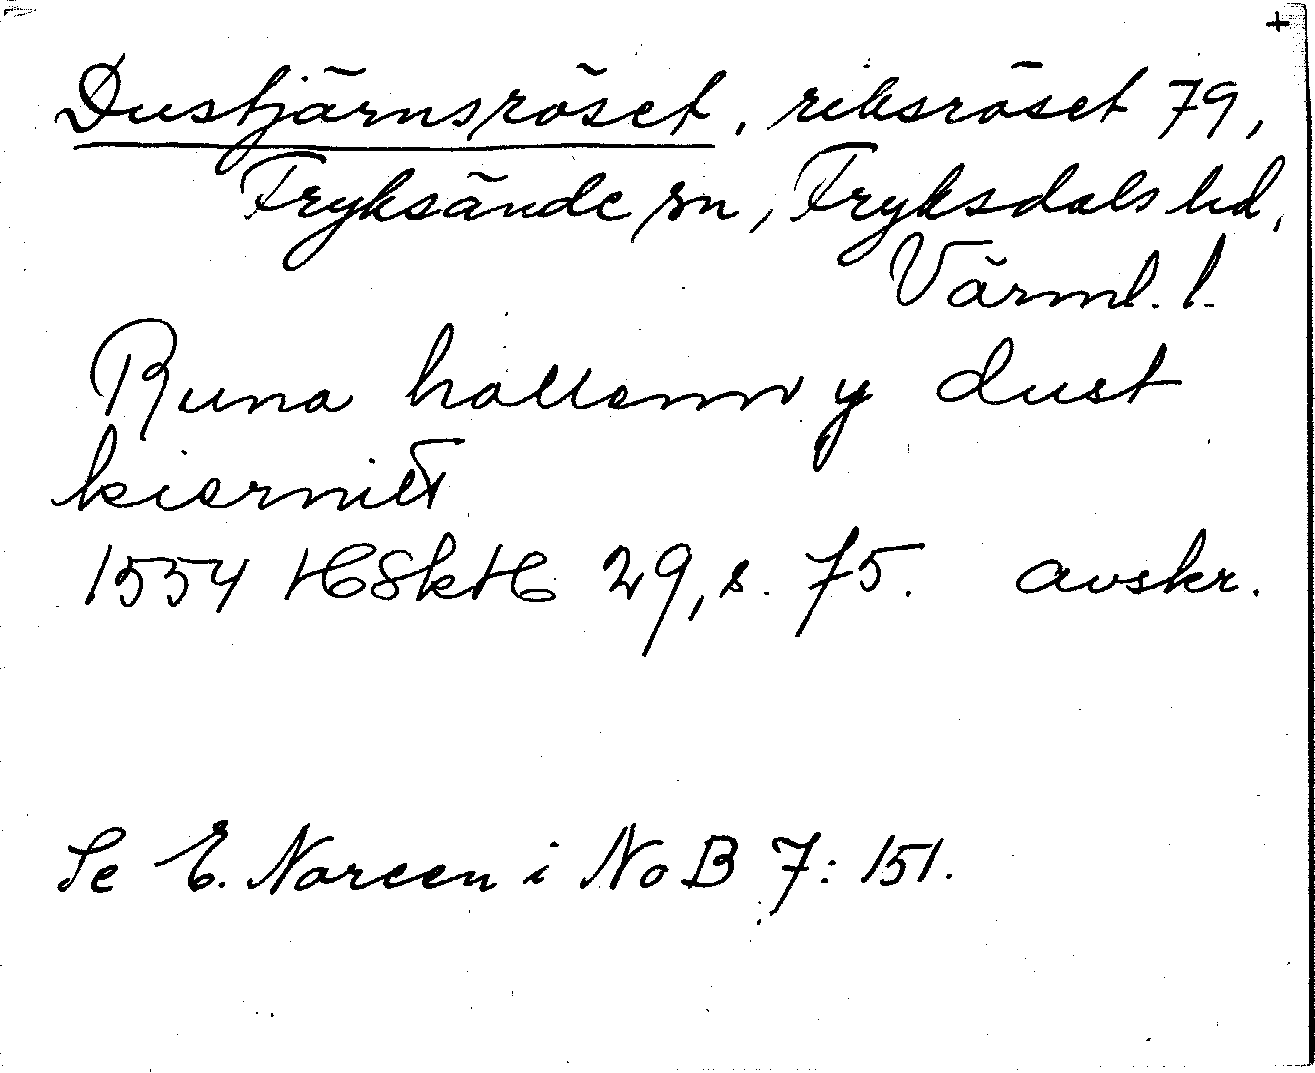 +
Dustjärnsröset, riksröset 79,
Fryksände sn, Fryksdals hd,
Värml. l.
Runa hallenn y dust
kiernitt
1554 HSkH 29, s. 75. avskr.
Se E. Noreen i NoB 7: 151.